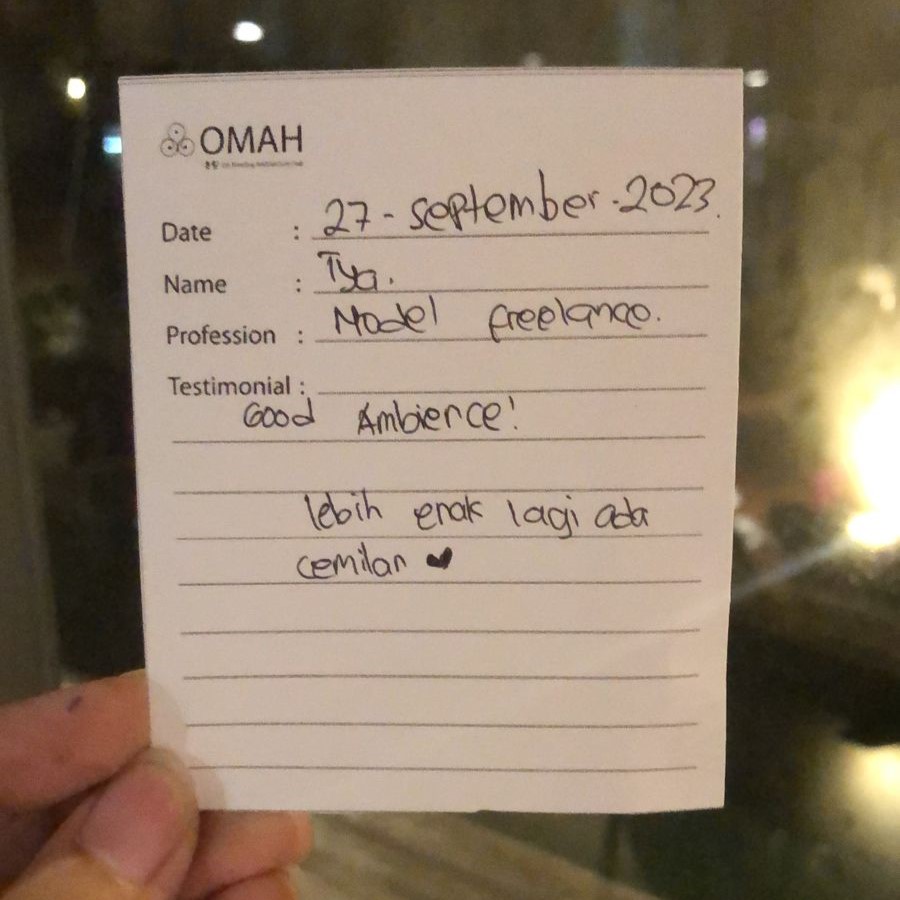 OMAH
Date : 27 - September - 2023.
Name : Tya.
Profession : Model freelance.
Testimonial :
Good Ambience!
lebih enak lagi ada
cemilan ♥